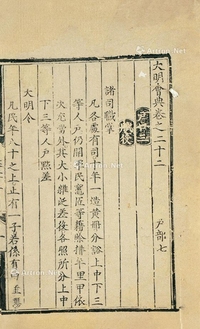 大明會典卷之二十二　戶部七
諸司職掌
凡各處有司十年一造黃冊分豁上中下三
等人戶仍開軍民竈匠等籍除排年里甲依
次充當外其大小雜泛差役各照所分上中
下三等人戶點差
大明令
凡民年八十之上止有一子若係有田產